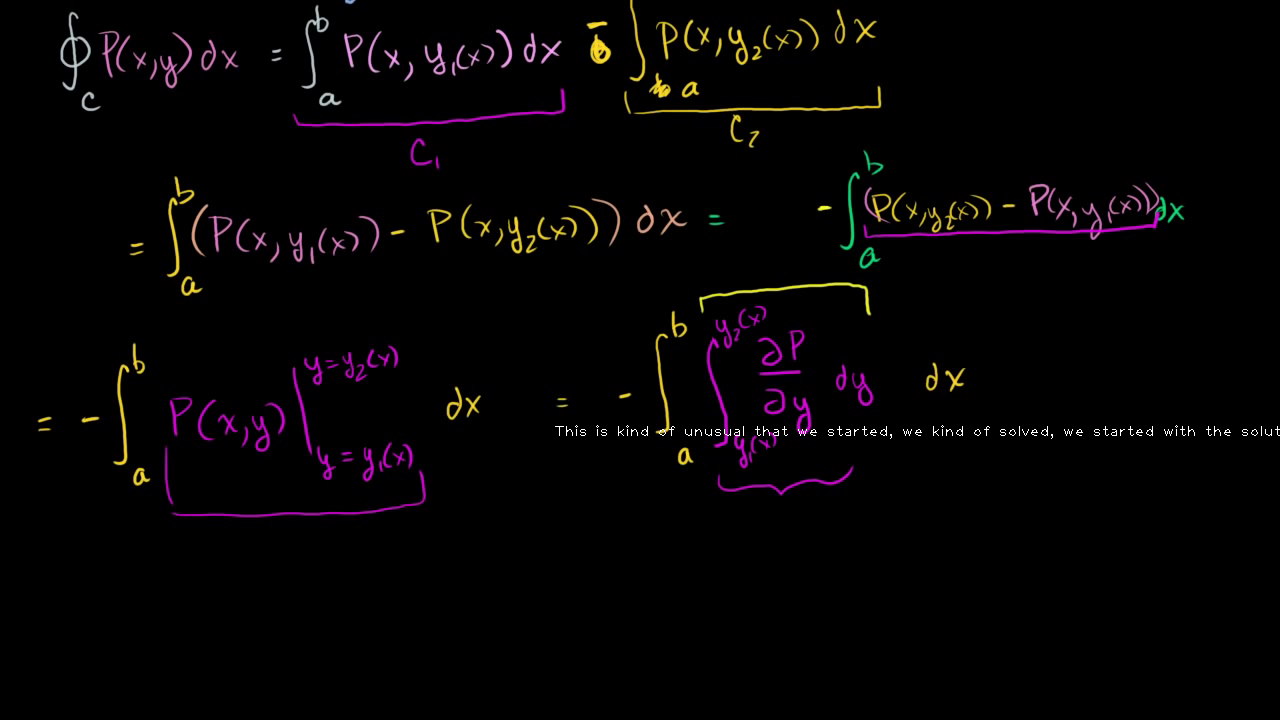 ∮_C P(x,y)dx = ∫_a^b P(x, y₁(x))dx - ∫_a P(x,y₂(x)) dx
C₁ C₂
= ∫_a^b (P(x,y₁(x)) - P(x,y₂(x))) dx = - ∫_a^b (P(x,y₂(x)) - P(x,y₁(x)))dx
= - ∫_a^b P(x,y) |_{y=y₁(x)}^{y=y₂(x)} dx = - ∫_a^b ∫_{y₁(x)}^{y₂(x)} ∂P/∂y dy dx
This is kind of unusual that we started, we kind of solved, we started with the solut